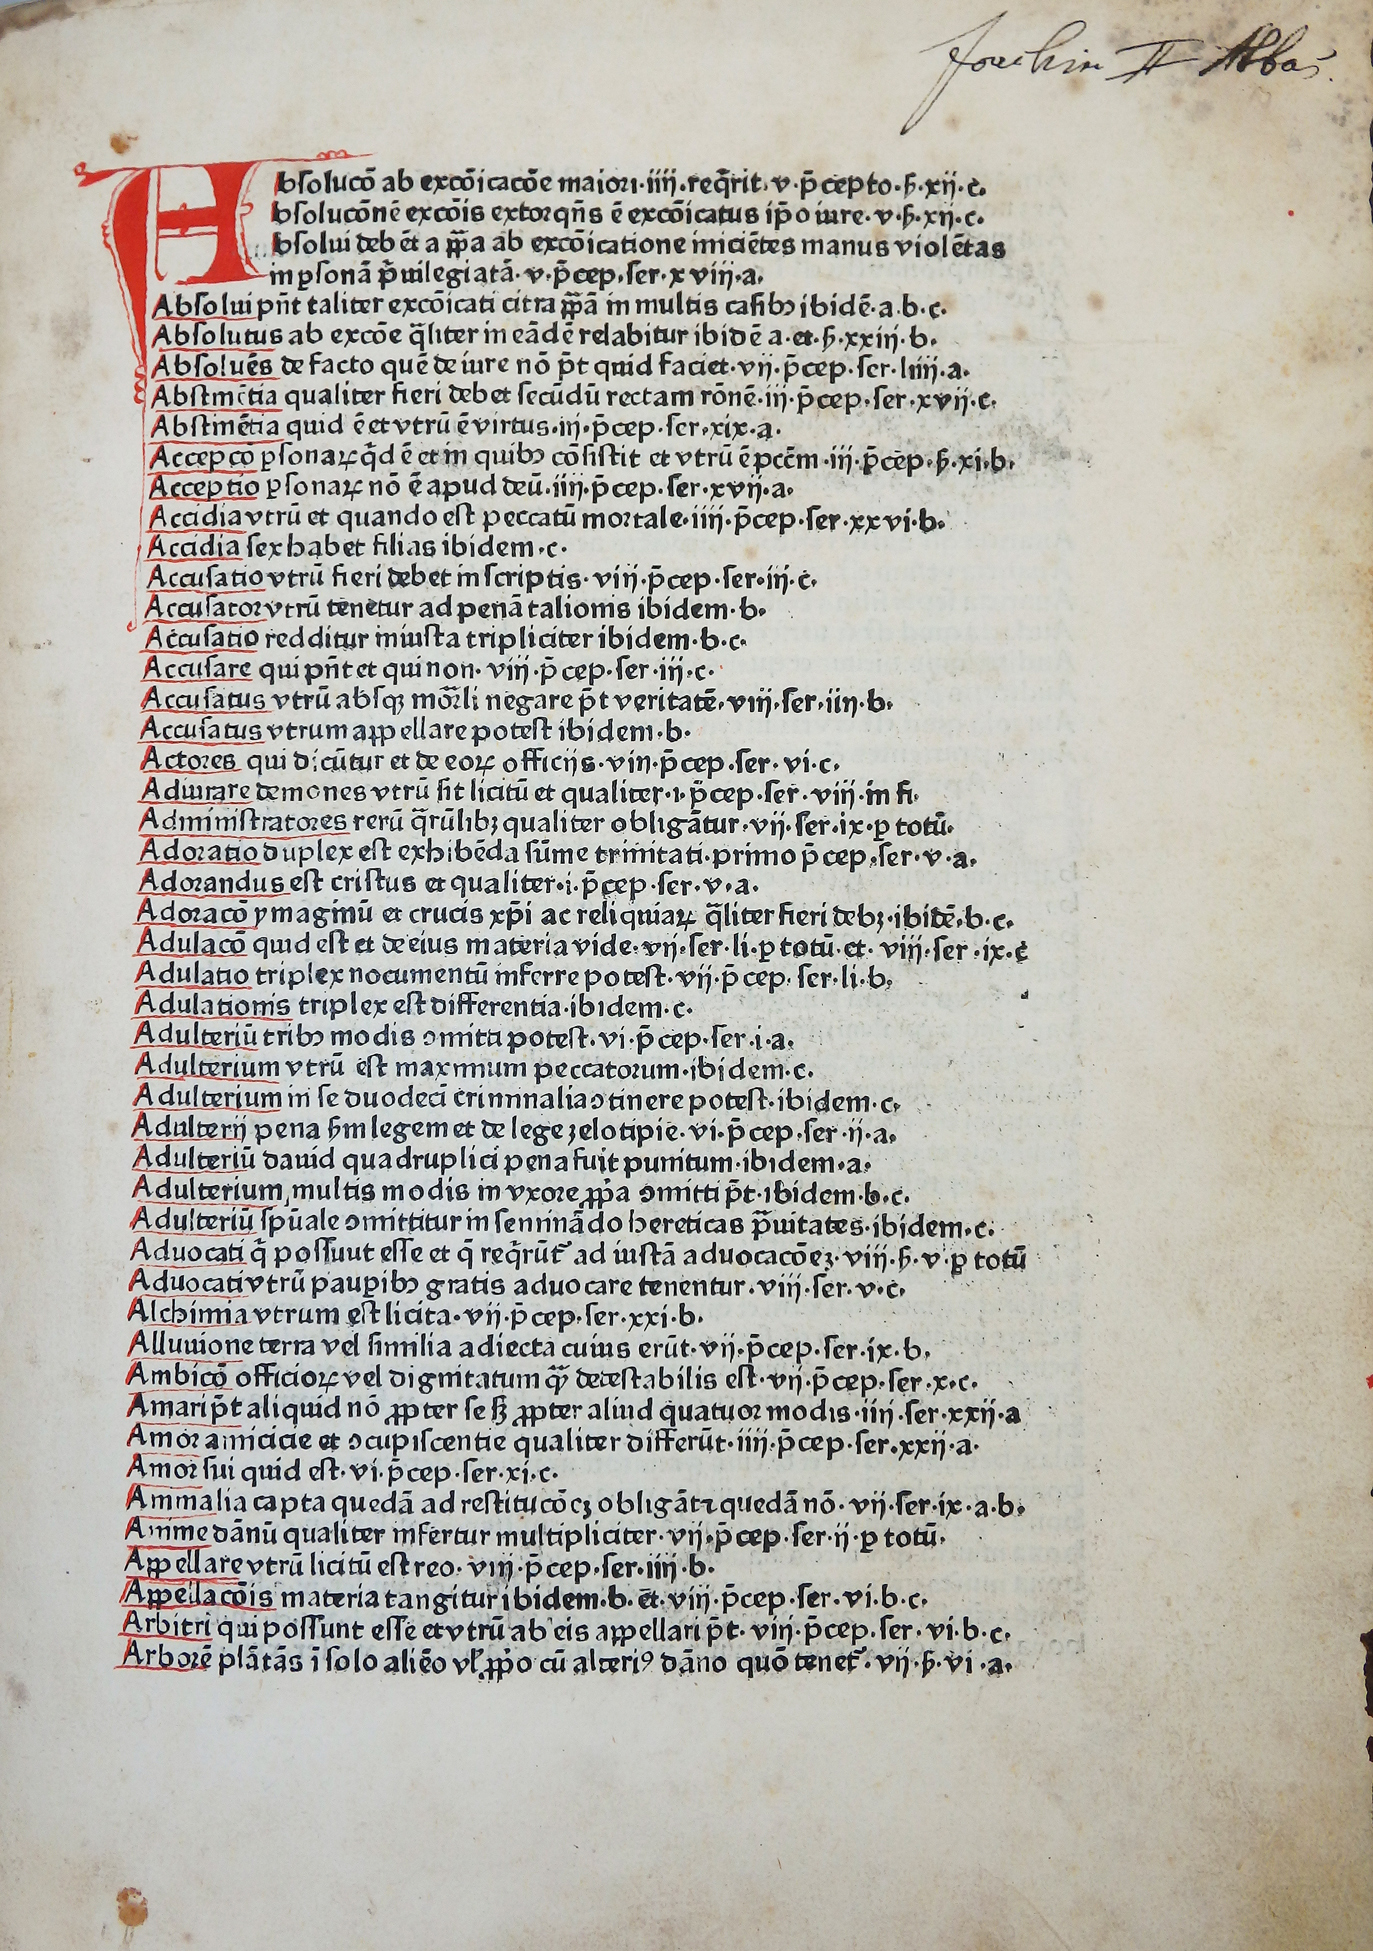 Joachim II Abbas.
Absolucō ab excōicacōe maiori·iiii·req̄rit·v·p̄cepto·ẜ·xij·c·
Absolucōnē excōis extorqn̄s ē excōicatus ip̄o iure·v·ẜ·xij·c·
Absolui debēt a pp̄a ab excōicatione iniciētes manus violētas
in ꝑsonā p̄uilegiatā·v·p̄cep·ser·xviij·a·
Absolui pn̄t taliter excōicati citra pp̄ā in multis casibꝰ ibidē·a·b·c·
Absolutus ab excōe q̄liter in eādē relabitur ibidē a·et·ẜ·xxiij·b·
Absoluēs de facto quē de iure nō p̄t quid faciet·vij·p̄cep·ser·liiij·a·
Abstinētia qualiter fieri debet secūdū rectam rōnē·iij·p̄cep·ser·xvij·c·
Abstinētia quid ē et vtrū ē virtus·iij·p̄cep·ser·xix·a·
Accepcō ꝑsonaꝝ q̄d ē et in quibꝰ cōsistit et vtrū ē pccm̄·iij·p̄cep·ẜ·xi·b·
Acceptio ꝑsonaꝝ nō ē apud deū·iiij·p̄cep·ser·xvij·a·
Accidia vtrū et quando est peccatū mortale·iiij·p̄cep·ser·xxvi·b·
Accidia sex habet filias ibidem·c·
Accusatio vtrū fieri debet in scriptis·viij·p̄cep·ser·iij·c·
Accusator vtrū tenetur ad penā talionis ibidem·b·
Accusatio redditur iniusta tripliciter ibidem·b·c·
Accusare qui pn̄t et qui non·viij·p̄cep·ser·iij·c·
Accusatus vtrū absqꝫ mor̄li negare p̄t veritatē·viij·ser·iiij·b·
Accusatus vtrum appellare potest ibidem·b·
Actores qui dicūtur et de eoꝝ officijs·viij·p̄cep·ser·vi·c·
Adiurare demones vtrū sit licitū et qualiter·i·p̄cep·ser·viij·in fi·
Administratores rerū q̄rūlibꝫ qualiter obligātur·vij·ser·ix·ꝑ totū·
Adoratio duplex est exhibēda sūme trinitati·primo p̄cep·ser·v·a·
Adorandus est cristus et qualiter·i·p̄cep·ser·v·a·
Adoracō ymaginū et crucis xp̄i ac reliquiaꝝ q̄liter fieri debꝫ·ibidē·b·c·
Adulacō quid est et de eius materia vide·vij·ser·li·ꝑ totū·et·viij·ser·ix·c
Adulatio triplex nocumentū inferre potest·vij·p̄cep·ser·li·b·
Adulationis triplex est differentia·ibidem·c·
Adulteriū tribꝰ modis ↄmitti potest·vi·p̄cep·ser·i·a·
Adulterium vtrū est maximum peccatorum·ibidem·c·
Adulterium in se duodecī criminalia ↄtinere potest·ibidem·c·
Adulterij pena ẜm legem et de lege zelotipie·vi·p̄cep·ser·ij·a·
Adulteriū dauid quadruplici pena fuit punitum·ibidem·a·
Adulterium multis modis in vxore pp̄a ↄmitti p̄t·ibidem·b·c·
Adulteriū spūale ↄmittitur in seminādo hereticas p̄uitates·ibidem·c·
Aduocati q̄ possunt esse et q̄ req̄rūt᷑ ad iustā aduocacōeꝫ·viij·ẜ·v·ꝑ totū
Aduocati vtrū paupibꝰ gratis aduocare tenentur·viij·ser·v·c·
Alchimia vtrum est licita·vij·p̄cep·ser·xxi·b·
Alluuione terra vel similia adiecta cuius erūt·vij·p̄cep·ser·ix·b·
Ambicō officioꝝ vel dignitatum qȝ̄ detestabilis est·vij·p̄cep·ser·x·c·
Amari p̄t aliquid nō ꝓpter se sꝫ ꝓpter aliud quatuor modis·iiij·ser·xxij·a
Amor amicicie et ↄcupiscentie qualiter differūt·iiij·p̄cep·ser·xxij·a·
Amor sui quid est·vi·p̄cep·ser·xi·c·
Animalia capta quedā ad restitucōeꝫ obligāt᷑ quedā nō·vij·ser·ix·a·b·
Anime dānū qualiter infertur multipliciter·vij·p̄cep·ser·ij·ꝑ totū·
Appellare vtrū licitū est reo·viij·p̄cep·ser·iiij·b·
Appellacōis materia tangitur ibidem·b·et·viij·p̄cep·ser·vi·b·c·
Arbitri qui possunt esse et vtrū ab eis appellari p̄t·viij·p̄cep·ser·vi·b·c·
Arborē plātās ī solo aliēo vl̄ pp̄o cū alteriꝰ dāno quō tenet᷑·vij·ẜ·vi·a·